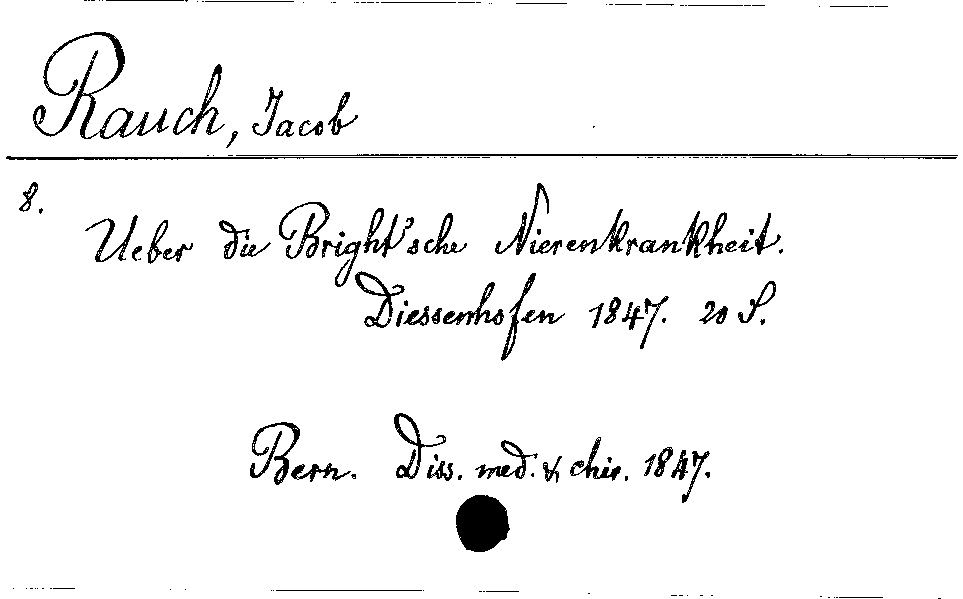 Rauch, Jacob
8.
Ueber die Bright'sche Nierenkrankheit.
Diessenhofen 1847. 20 S.
Bern. Diss. med. & chir. 1847.